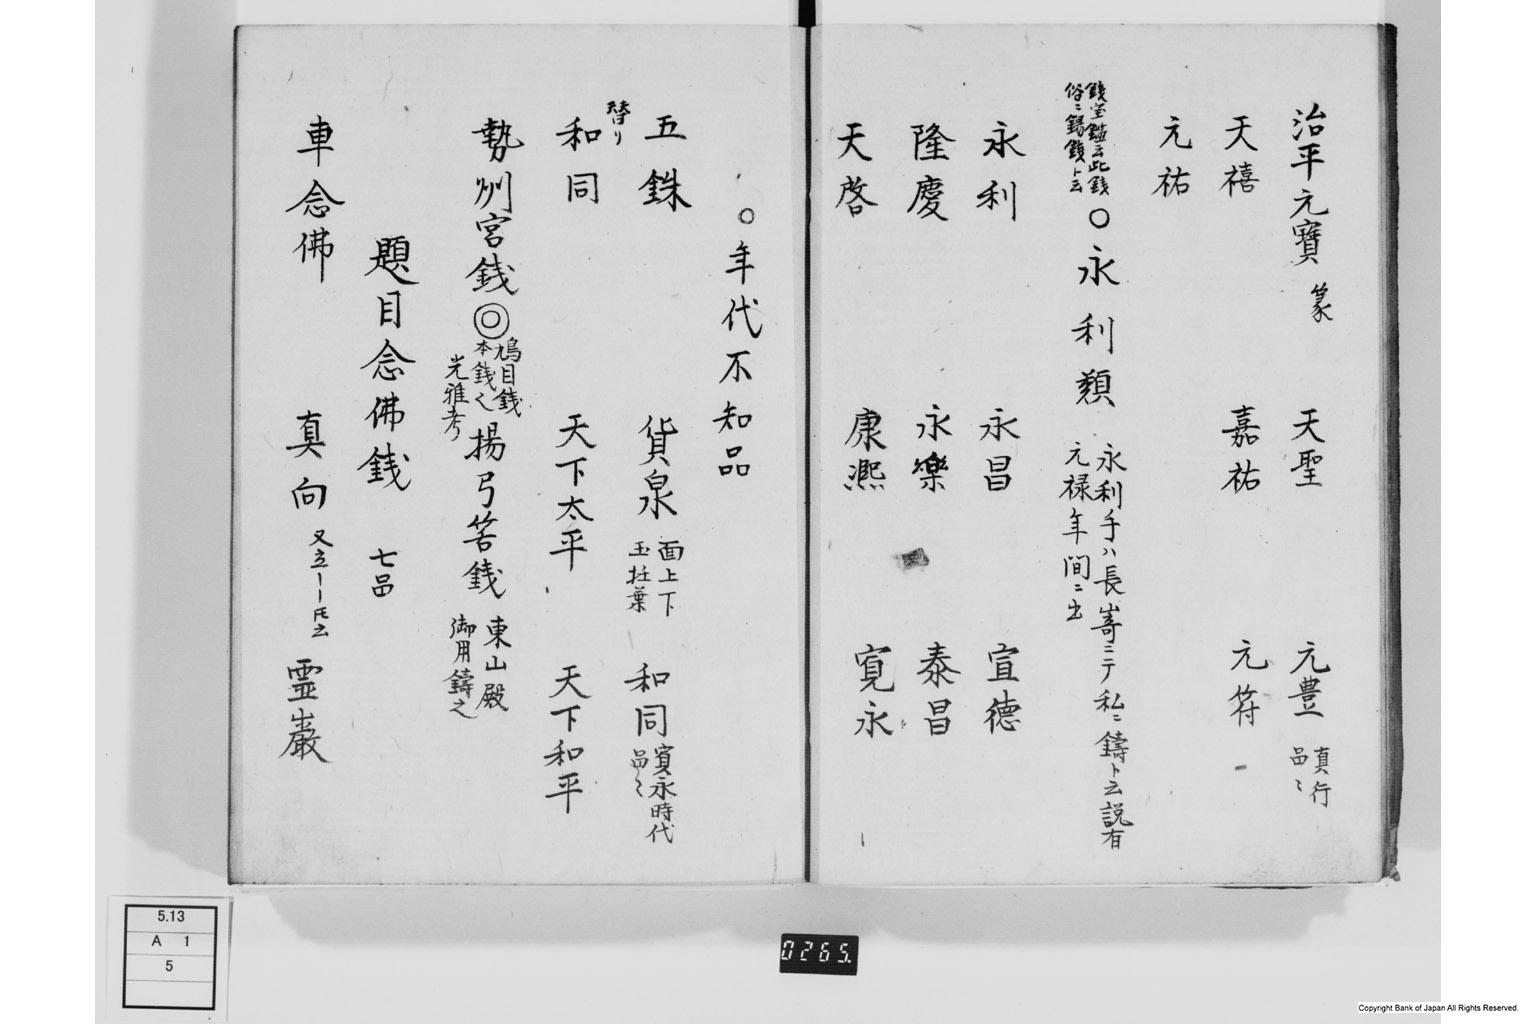 治平元寳 篆 天聖 元豊 真行品〻
天禧 嘉祐 元符
元祐
銭宝鑑云此銭俗ニ錫銭ト云 ○永利類 永利手ハ長嵜ニテ私ニ鑄ト云説有元禄年間ニ出
永利 永昌 宣德
隆慶 永樂 泰昌
天啓 康熙 寛永
○年代不知品
五銖 貨泉 面上下玉 葉 和同 寛永時代品〻
替り
和同 天下太平 天下和平
勢州宮銭 ◎ 鳩目銭本銭之光雅考 揚弓筈銭 東山殿御用鑄之
題目念佛銭 七品
車念佛 真向 又 霊巌
5.13
A 1
5
0265.
Copyright Bank of Japan All Rights Reserved.